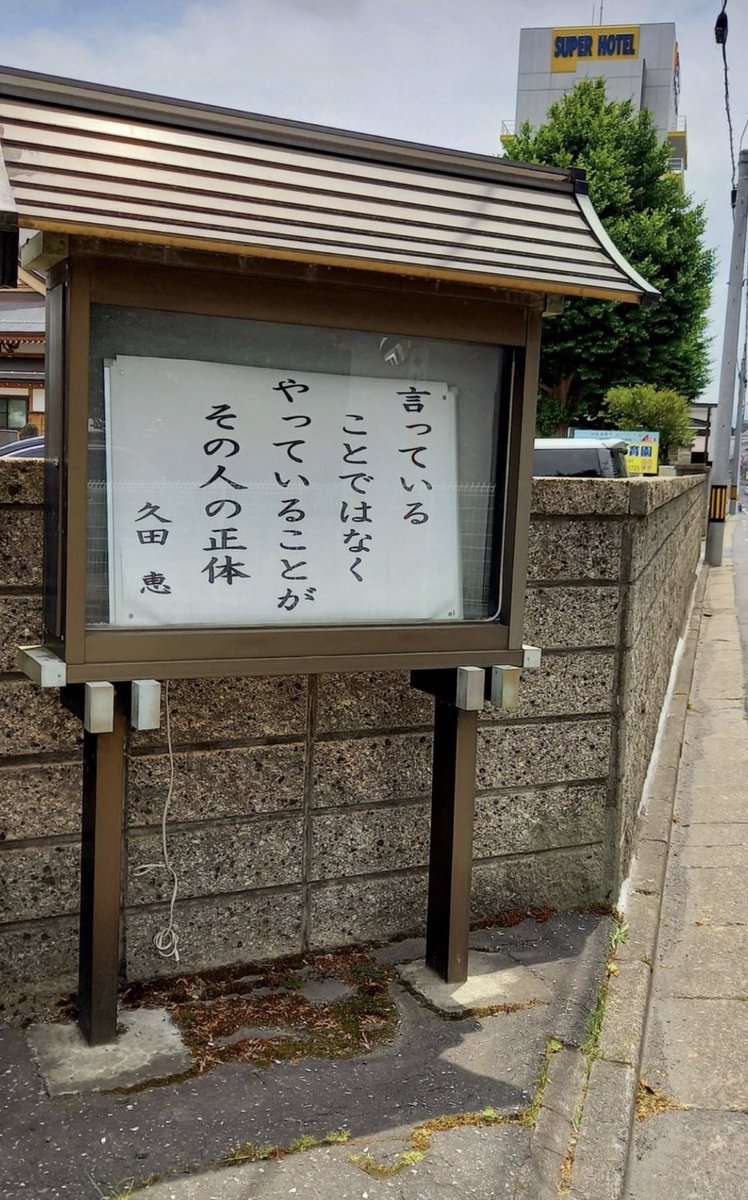 SUPER HOTEL
言っている
ことではなく
やっていることが
その人の正体
久田 恵
育園